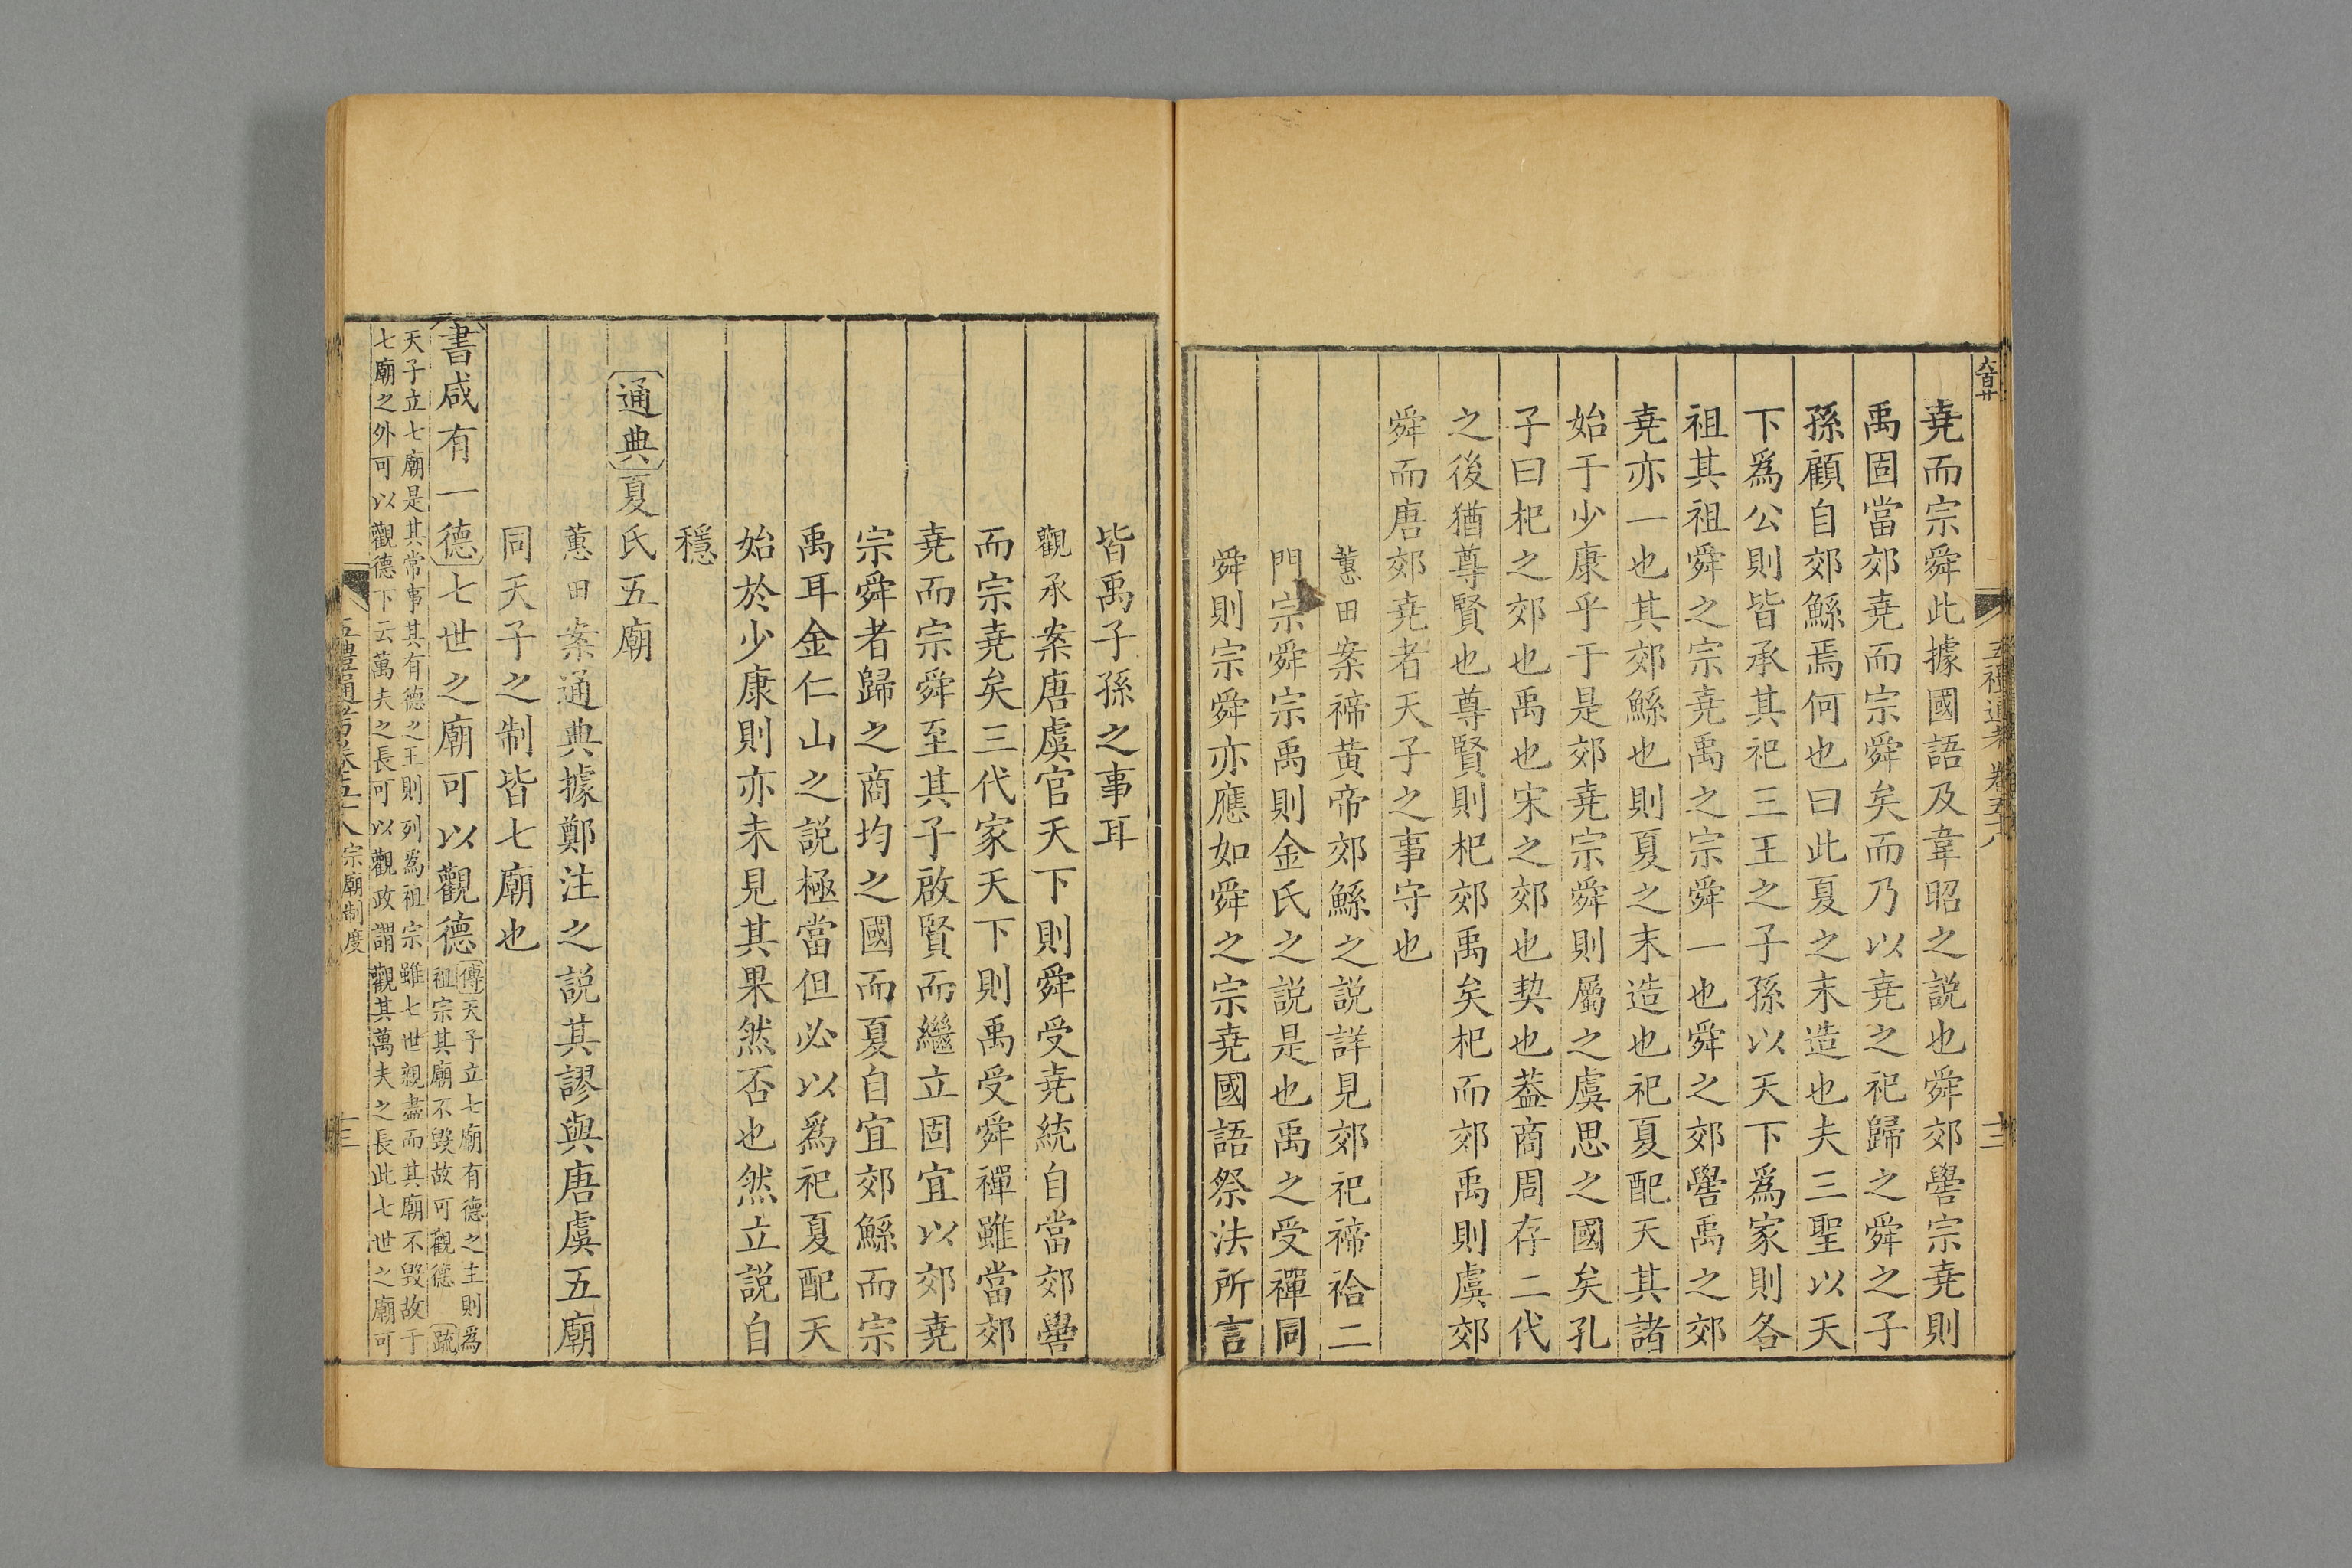 六百廿
五禮通考 卷五十八
十二
堯而宗舜此據國語及韋昭之說也舜郊嚳宗堯則
禹固當郊堯而宗舜矣而乃以堯之祀歸之舜之子
孫顧自郊鯀焉何也曰此夏之末造也夫三聖以天
下爲公則皆承其祀三王之子孫以天下爲家則各
祖其祖舜之宗堯禹之宗舜一也舜之郊嚳禹之郊
堯亦一也其郊鯀也則夏之末造也祀夏配天其諸
始于少康乎于是郊堯宗舜則屬之虞思之國矣孔
子曰杞之郊也禹也宋之郊也契也葢商周存二代
之後猶尊賢也尊賢則杞郊禹矣杞而郊禹則虞郊
舜而唐郊堯者天子之事守也
蕙田案禘黄帝郊鯀之説詳見郊祀禘祫二
門宗舜宗禹則金氏之説是也禹之受禪同
舜則宗舜亦應如舜之宗堯國語祭法所言
皆禹子孫之事耳
觀承案唐虞官天下則舜受堯統自當郊嚳
而宗堯矣三代家天下則禹受舜禪雖當郊
堯而宗舜至其子啟賢而繼立固宜以郊堯
宗舜者歸之商均之國而夏自宜郊鯀而宗
禹耳金仁山之説極當但必以爲祀夏配天
始於少康則亦未見其果然否也然立説自
穩
通典夏氏五廟
蕙田案通典據鄭注之説其謬與唐虞五廟
同天子之制皆七廟也
書咸有一德七世之廟可以觀德傳天子立七廟有德之王則爲
祖宗其廟不毀故可觀德 疏
天子立七廟是其常事其有德之王則列爲祖宗雖七世親盡而其廟不毀故于
七廟之外可以觀德下云萬夫之長可以觀政謂觀其萬夫之長此七世之廟可
五禮通考卷五十八 宗廟制度